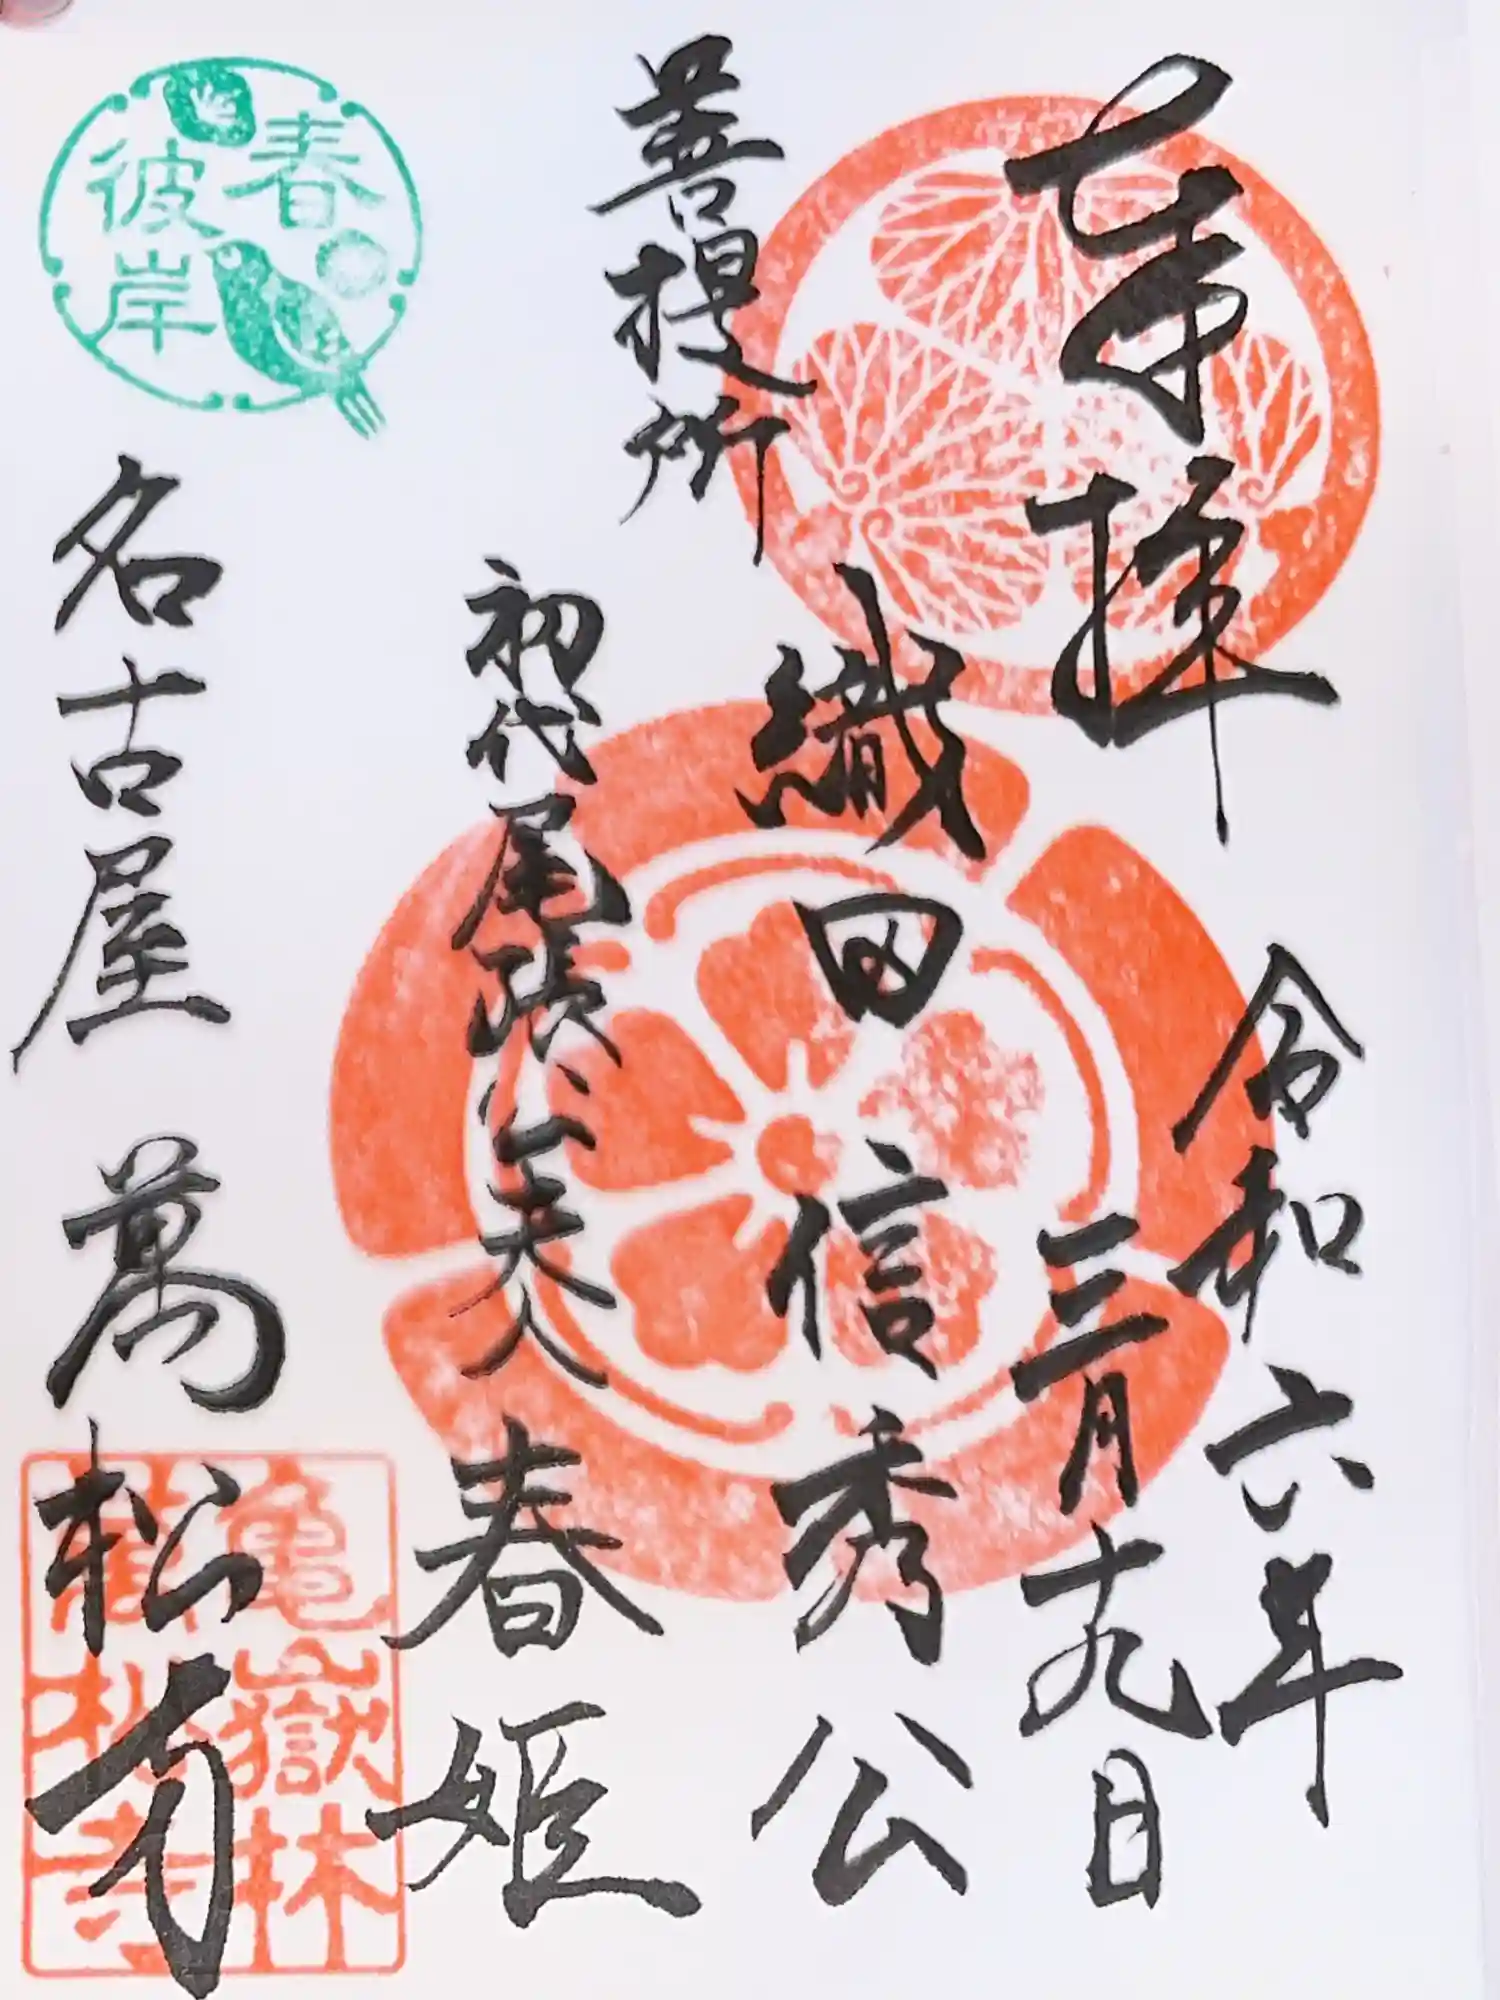 奉拝
令和六年
三月十九日
菩提所
織田信秀公
初代尾張公夫人
春姫
春
彼岸
名古屋
萬松寺
亀嶽林
萬松寺